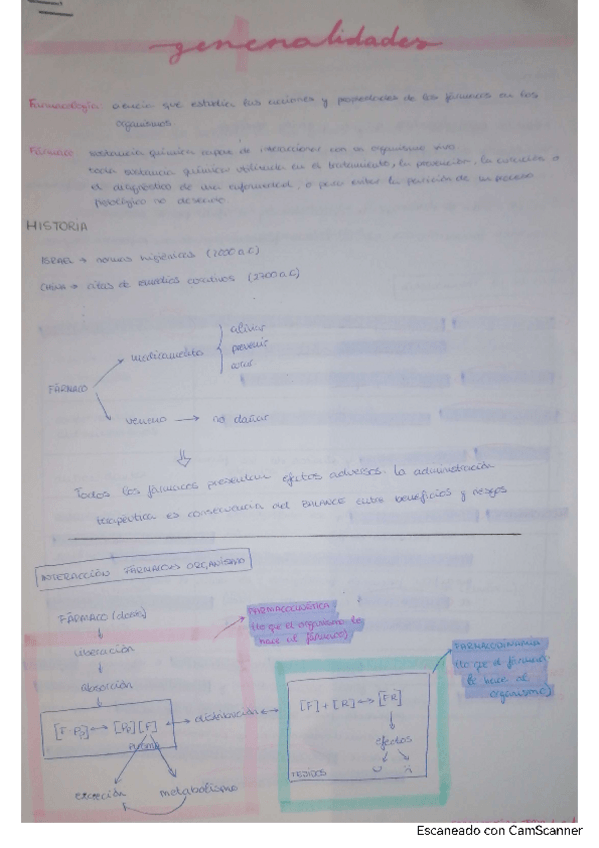 generalidades
Farmacología: ciencia que estudia las acciones y propiedades de los fármacos en los
organismos
Fármaco: sustancia química capaz de interaccionar con un organismo vivo.
toda sustancia química utilizada en el tratamiento, la prevención, la curación o
el diagnóstico de una enfermedad, o para evitar la aparición de un proceso
fisiológico no deseado
HISTORIA
ISRAEL → normas higiénicas (1000 a.C)
CHINA → citas de remedios curativos (2700 a.C)
FÁRMACO
medicamento
aliviar
prevenir
curar
veneno → no dañar
Todos los fármacos presentan efectos adversos. La administración
terapéutica es consecuencia del BALANCE entre beneficios y riesgos
INTERACCIÓN FÁRMACOS ORGANISMO
FÁRMACO (dosis)
liberación
absorción
FARMACOCINÉTICA
(lo que el organismo le
hace al fármaco)
[F-Pp] ↔ [Pp] [F]
plasma
↔ distribución ↔
excreción
metabolismo
FARMACODINAMIA
(lo que el fármaco
le hace al
organismo)
[F] + [R] ↔ [FR]
efectos
TEJIDOS
Escaneado con CamScanner